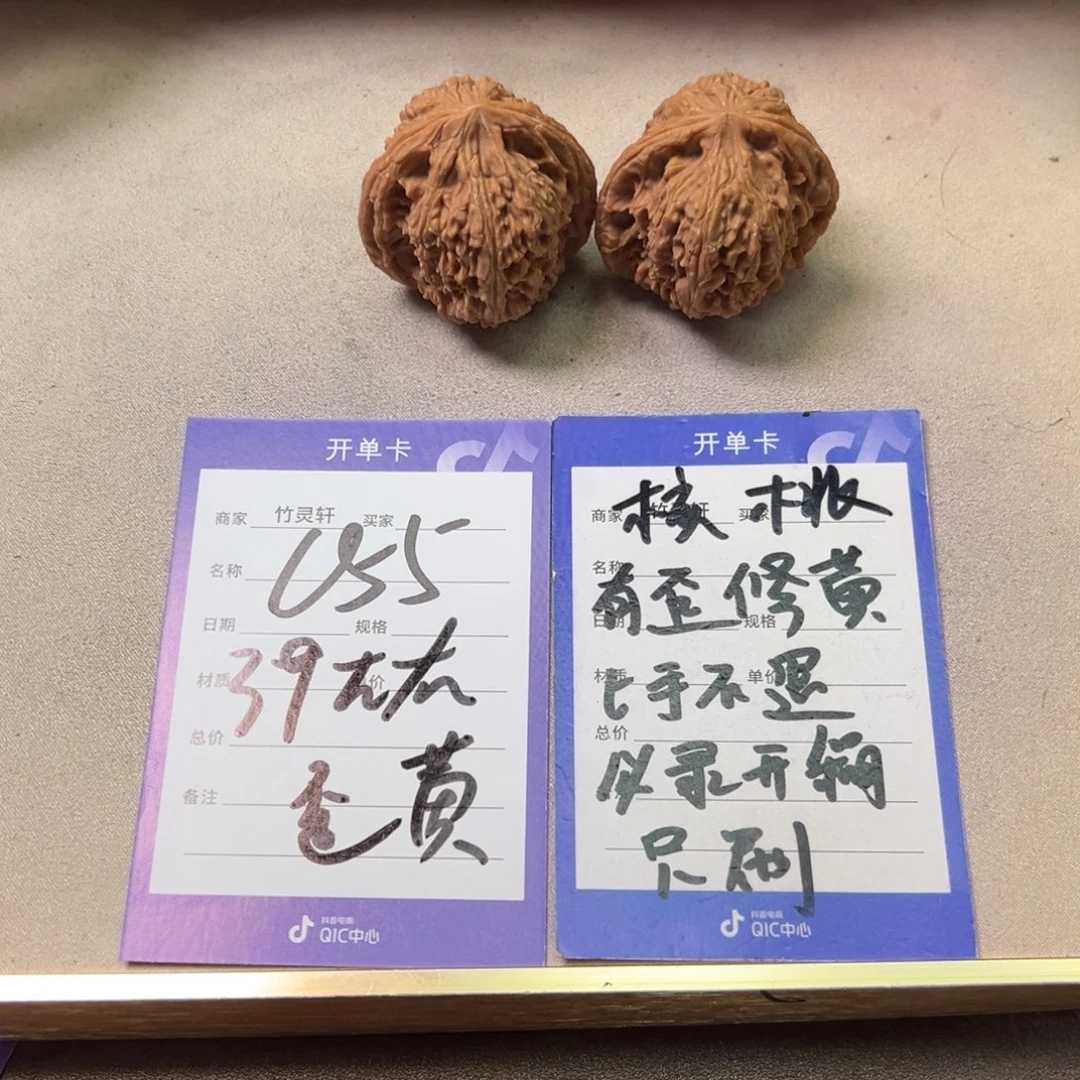 开单卡
商家 竹灵轩 买家
名称
日期 规格
材质 价
总价
备注
39左右
歪黄
抖音电商
QIC中心
开单卡
商家 竹灵轩 买家
名称
日期 规格
材质 单价
总价
核桃
有歪修黄
上手不退
必录开箱
尺刷
抖音电商
QIC中心